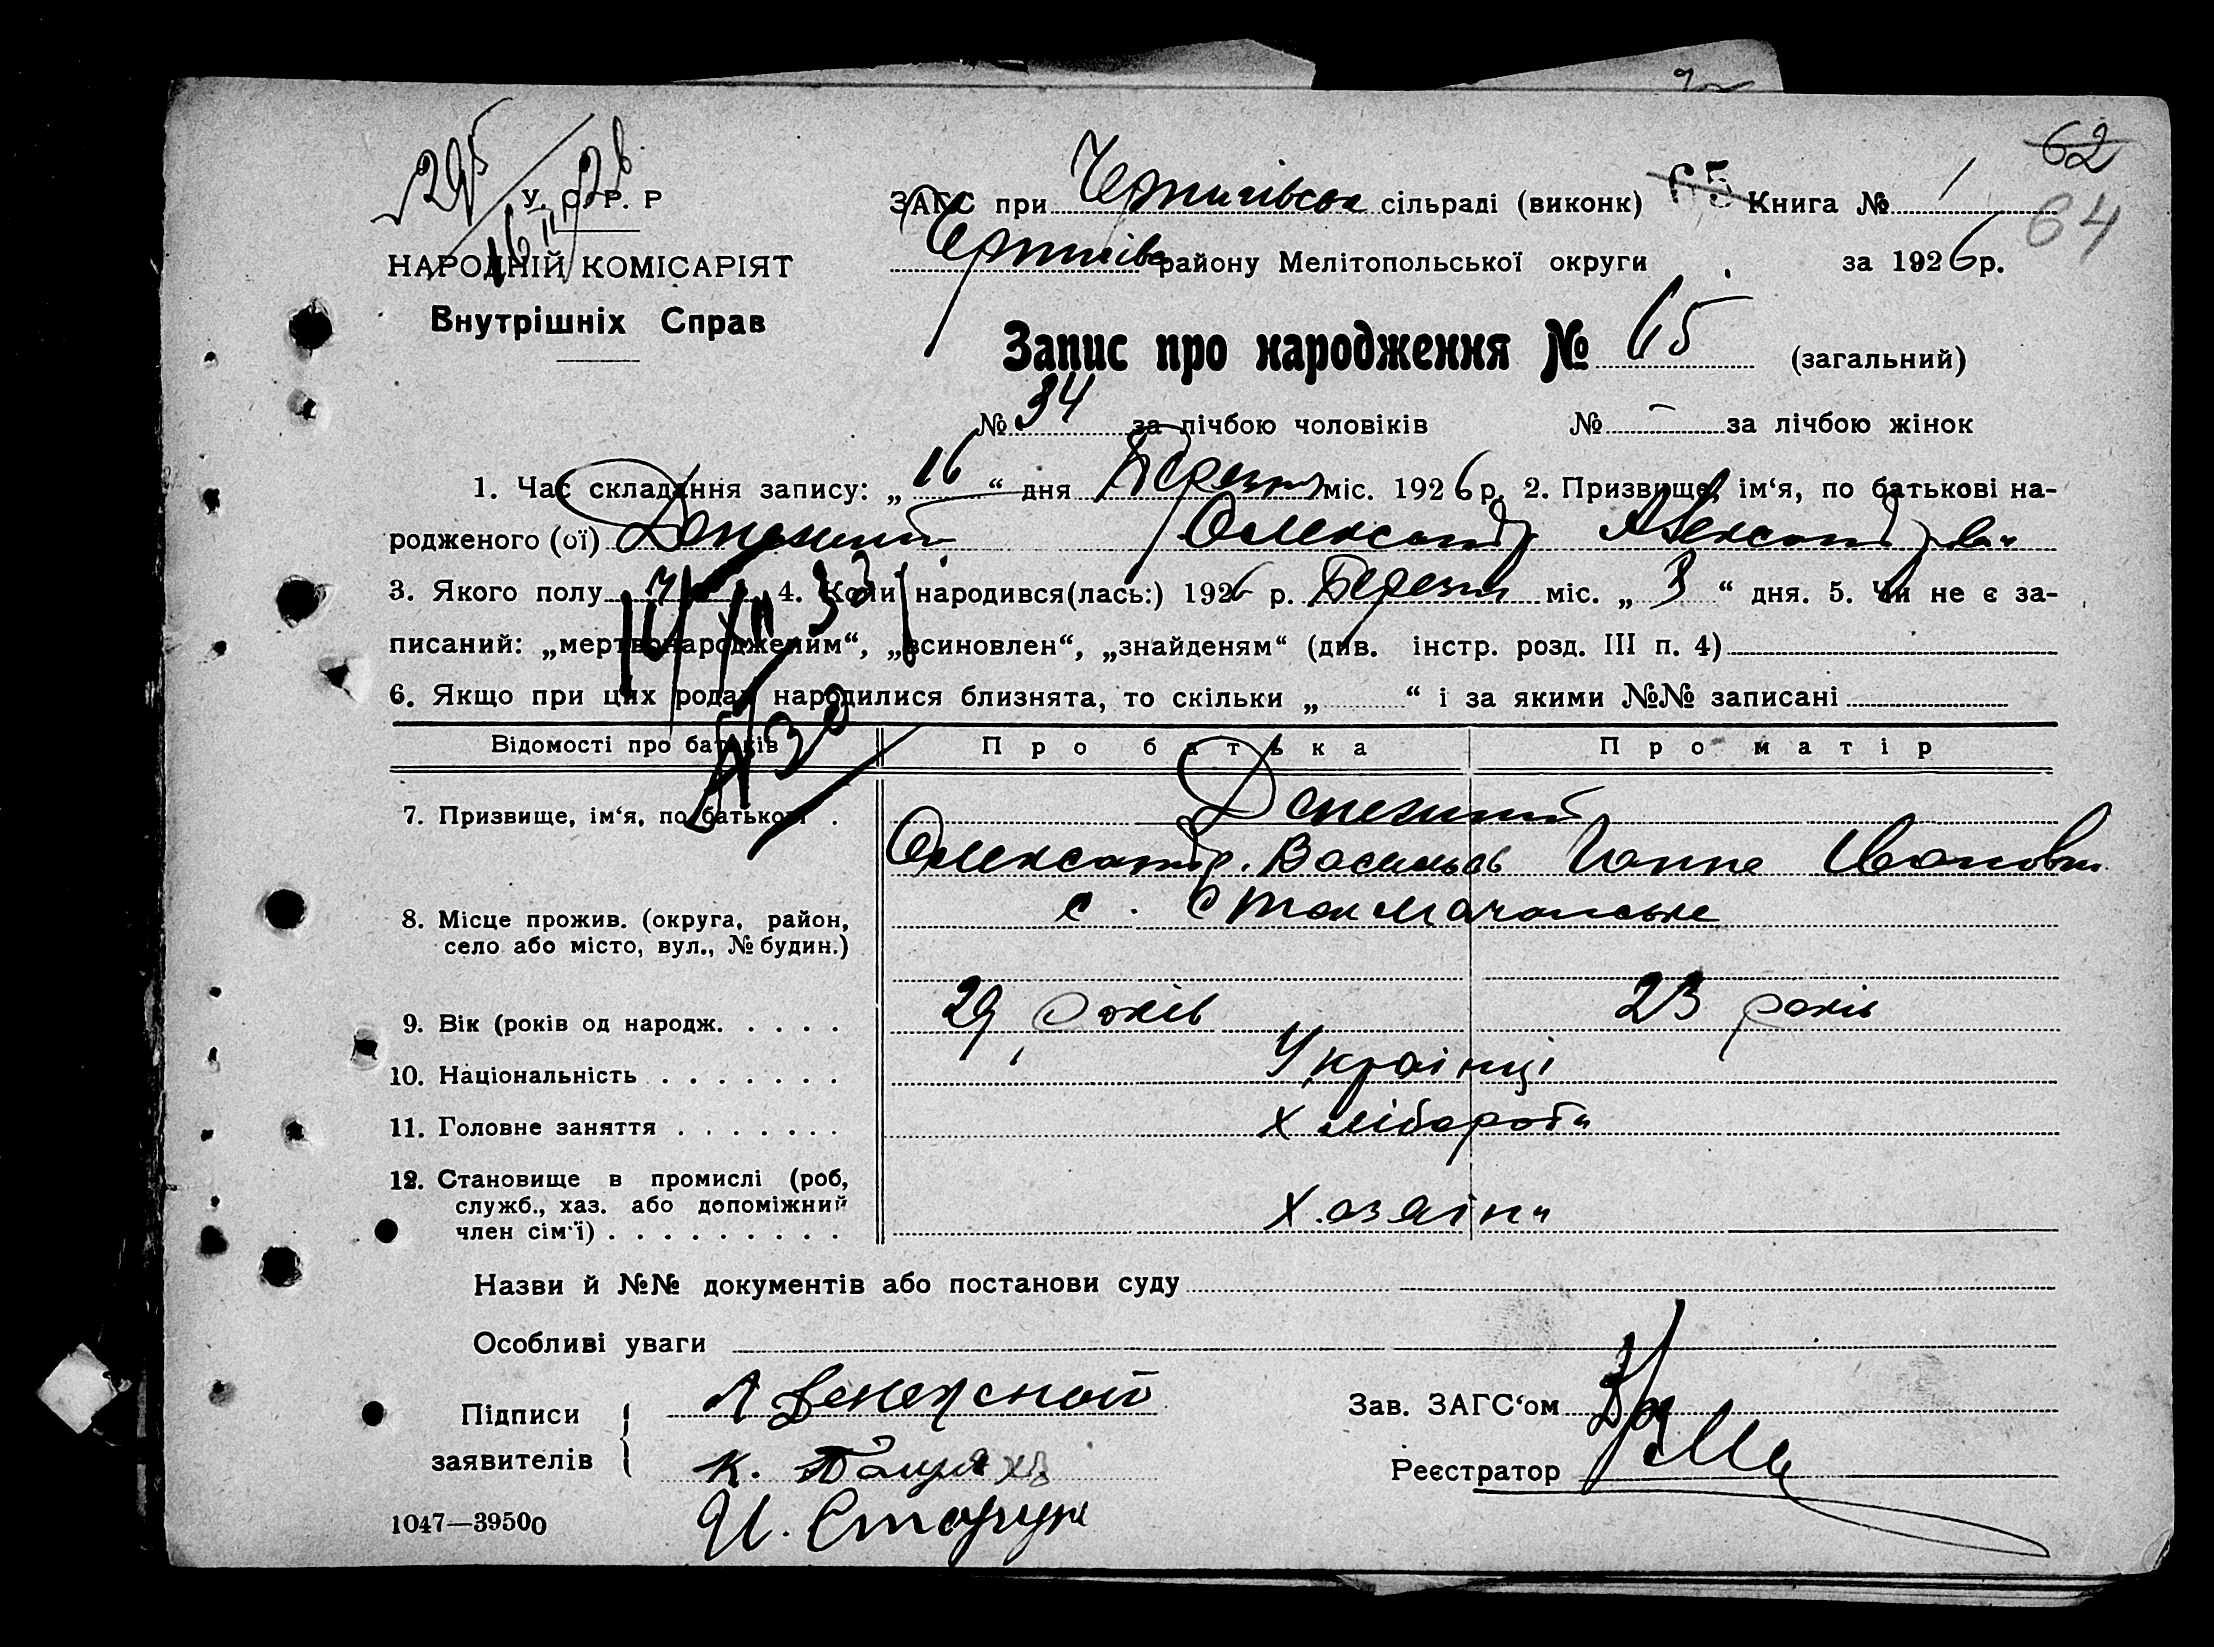 295/26
16/II
62
64
У. С. Р. Р
НАРОДНІЙ КОМІСАРІЯТ
Внутрішніх Справ
ЗАГС при Чернигівськ сільраді (виконк) 65 Книга № 1
Чернигівс району Мелітопольської округи за 1926 р.
Запис про народження № 65 (загальний)
№ 34 за лічбою чоловіків № — за лічбою жінок
1. Час складання запису: „16“ дня Березня міс. 1926 р. 2. Призвище, ім‘я, по батькові на-
родженого (ої) Олександр Александров
3. Якого полу ч 4. Коли народився(лась:) 1926 р. Березня міс. „3“ дня. 5. Чи не є за-
писаний: „мертвонародженим“, „всиновлен“, „знайденям“ (див. інстр. розд. III п. 4)
6. Якщо при цих родах народилися близнята, то скільки „ “ і за якими №№ записані
Відомості про батьків Про батька Про матір
7. Призвище, ім‘я, по батькові .
Олександр. Васильев Ганна Ивановн
8. Місце прожив. (округа, район,
село або місто, вул., № будин.)
с. Стокмачанське
9. Вік (років од народж. . . . . 29 років 23 років
10. Національність . . . . . . . Українці
11. Головне заняття . . . . . . . Хлібороби
12. Становище в промислі (роб,
служб., хаз. або допоміжний
член сім‘ї) . . . . . . . . . Хозяіни
Назви й №№ документів або постанови суду
Особливі уваги
Підписи
заявителів
А Денежной
К.
И.
Зав. ЗАГС‘ом
Реєстратор
1047—39500